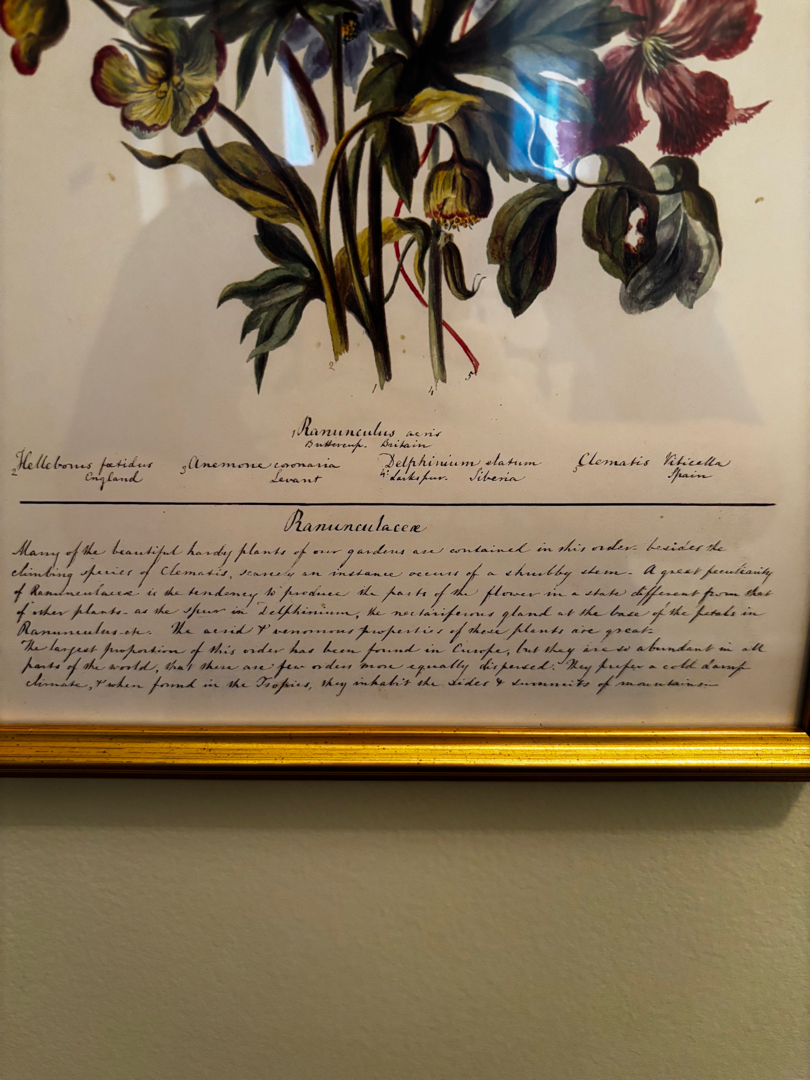 2 1 4 5
1 Ranunculus acris
Buttercup. Britain
2 Helleborus fœtidus 3 Anemone coronaria Delphinium elatum 5 Clematis Viticella
England Levant 4 Larkspur. Siberia Spain
Ranunculaceæ
Many of the beautiful hardy plants of our gardens are contained in this order. besides the
climbing species of Clematis, scarcely an instance occurs of a shrubby stem. A great peculiarity
of Ranunculaceæ is the tendency to produce the parts of the flower in a state different from that
of other plants. as the spur in Delphinium, the nectariferous gland at the base of the petals in
Ranunculus etc. The acrid & venomous properties of these plants are great.
The largest proportion of this order has been found in Europe, but they are so abundant in all
parts of the world, that there are few orders more equally dispersed. They prefer a cold damp
climate, & when found in the Tropics, they inhabit the sides & summits of mountains.